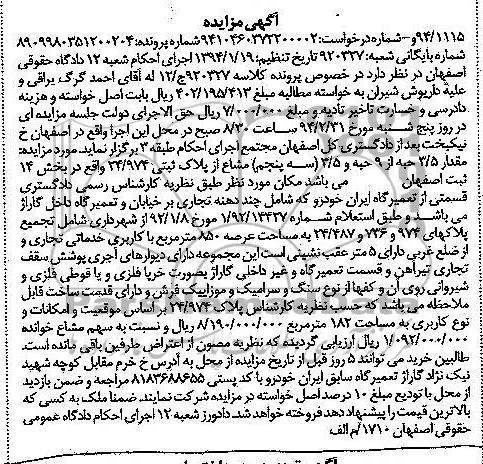 آگهی مزایده
۹۴/۱۱۱۵و-شماره درخواست: ۹۴۱۰۴۶۰۳۷۲۲۰۰۰۰۲ شماره پرونده: ۸۹۰۹۹۸۰۳۵۱۲۰۰۲۰۴
شماره بایگانی شعبه: ۹۲۰۳۲۷ تاریخ تنظیم: ۱۳۹۴/۱/۱۹ اجرای احکام شعبه ۱۲ دادگاه حقوقی
اصفهان در نظر دارد در خصوص پرونده کلاسه ۹۲۰۳۲۷ ج/۱۲ له آقای احمد گرگ یراقی و
علیه داریوش شیران به خواسته مطالبه مبلغ ۴۰۲/۱۹۵/۴۱۳ ریال بابت اصل خواسته و هزینه
دادرسی و خسارت تاخیر تادیه و مبلغ ۷/۰۰۰/۰۰۰ ریال حق الاجرای دولت جلسه مزایده ای
در روز پنج شنبه مورخ ۹۴/۲/۳۱ ساعت ۸/۳۰ صبح در محل این اجرا واقع در اصفهان خ
نیکبخت بعد از دادگستری کل اصفهان مجتمع اجرای احکام طبقه ۳ برگزار نماید. مورد مزایده:
مقدار ۲/۵ حبه از ۹ حبه و ۳/۵ (سه پنجم) مشاع از پلاک ثبتی ۲۴/۹۷۴ واقع در بخش ۱۴
ثبت اصفهان می باشد مکان مورد نظر طبق نظریه کارشناس رسمی دادگستری
قسمتی از تعمیرگاه ایران خودرو که شامل چند دهنه تجاری بر خیابان و تعمیرگاه داخل گاراژ
می باشد و طبق استعلام شماره ۱/۹۲/۱۴۴۳۷ مورخ ۹۲/۱/۸ از شهرداری شامل تجمیع
پلاکهای ۹۷۴ و ۷۳۶ و ۲۴/۴۸۷ به مساحت عرصه ۸۵۰ مترمربع با کاربری خدماتی تجاری و
از ضلع غربی دارای ۵ متر عقب نشینی است این مجموعه دارای دیوارهای آجری پوشش سقف
تجاری تیرآهن و قسمت تعمیرگاه و غیر داخلی گاراژ بصورت خرپا فلزی و یا قوطی فلزی و
شیروانی روی آن و کفها از نوع سنگ و سرامیک و موزاییک فرش و دارای قدمت ساخت قابل
ملاحظه می باشد که حسب نظریه کارشناس پلاک ۲۴/۹۷۴ بر اساس موقعیت و امکانات و
نوع کاربری به مساحت ۱۸۲ مترمربع ۸/۱۹۰/۰۰۰/۰۰۰ ریال و نسبت به سهم مشاع خوانده
۱/۰۹۲/۰۰۰/۰۰۰ ریال ارزیابی گردیده که نظریه مصون از اعتراض طرفین باقی مانده است.
طالبین خرید می توانند ۵ روز قبل از تاریخ مزایده از محل به آدرس خ خرم مقابل کوچه شهید
نیک نژاد گاراژ تعمیرگاه سابق ایران خودرو با کد پستی ۸۱۸۳۶۸۸۶۵۵ مراجعه و ضمن بازدید
از محل با تودیع مبلغ ۱۰ درصد اصل خواسته در مزایده شرکت نمایند. ضمنا ملک به کسی که
بالاترین قیمت را پیشنهاد دهد فروخته خواهد شد. دادورز شعبه ۱۲ اجرای احکام دادگاه عمومی
حقوقی اصفهان ۱۷۱۰/م الف